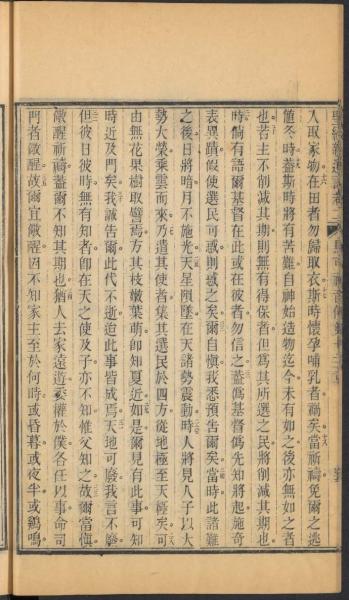 入取家物在田者勿歸取衣斯時懷孕哺乳者禍矣當祈禱免爾之逃
値冬時蓋斯時將有苦難自神始造物迄今未有如之後亦無如之者
也若主不削減其期則無有得保者但爲其所選之民將削減其期也
時倘有語爾基督在此或在彼者勿信之蓋僞基督僞先知將起施奇
表異蹟假使選民可惑則惑之矣爾自愼我悉預吿爾矣當時此諸難
之後日將暗月不施光天星隕墜在天諸勢震動時人將見人子以大
勢大榮乘雲而來乃遣其使者集其選民於四方從地極至天極矣可
由無花果樹取譬焉方其枝嫩葉萌卽知夏近如是爾見有此事可知
時近及門矣我誠吿爾此代不逝迨此事皆成焉天地可廢我言不廢
但彼日彼時無有知者卽在天之使及子亦不知惟父知之故爾當愼
儆醒祈禱蓋爾不知其期也猶人去家遠遊委權於僕各任以事命司
門者儆醒故爾宜儆醒因不知家主至於何時或昏暮或夜半或鷄鳴